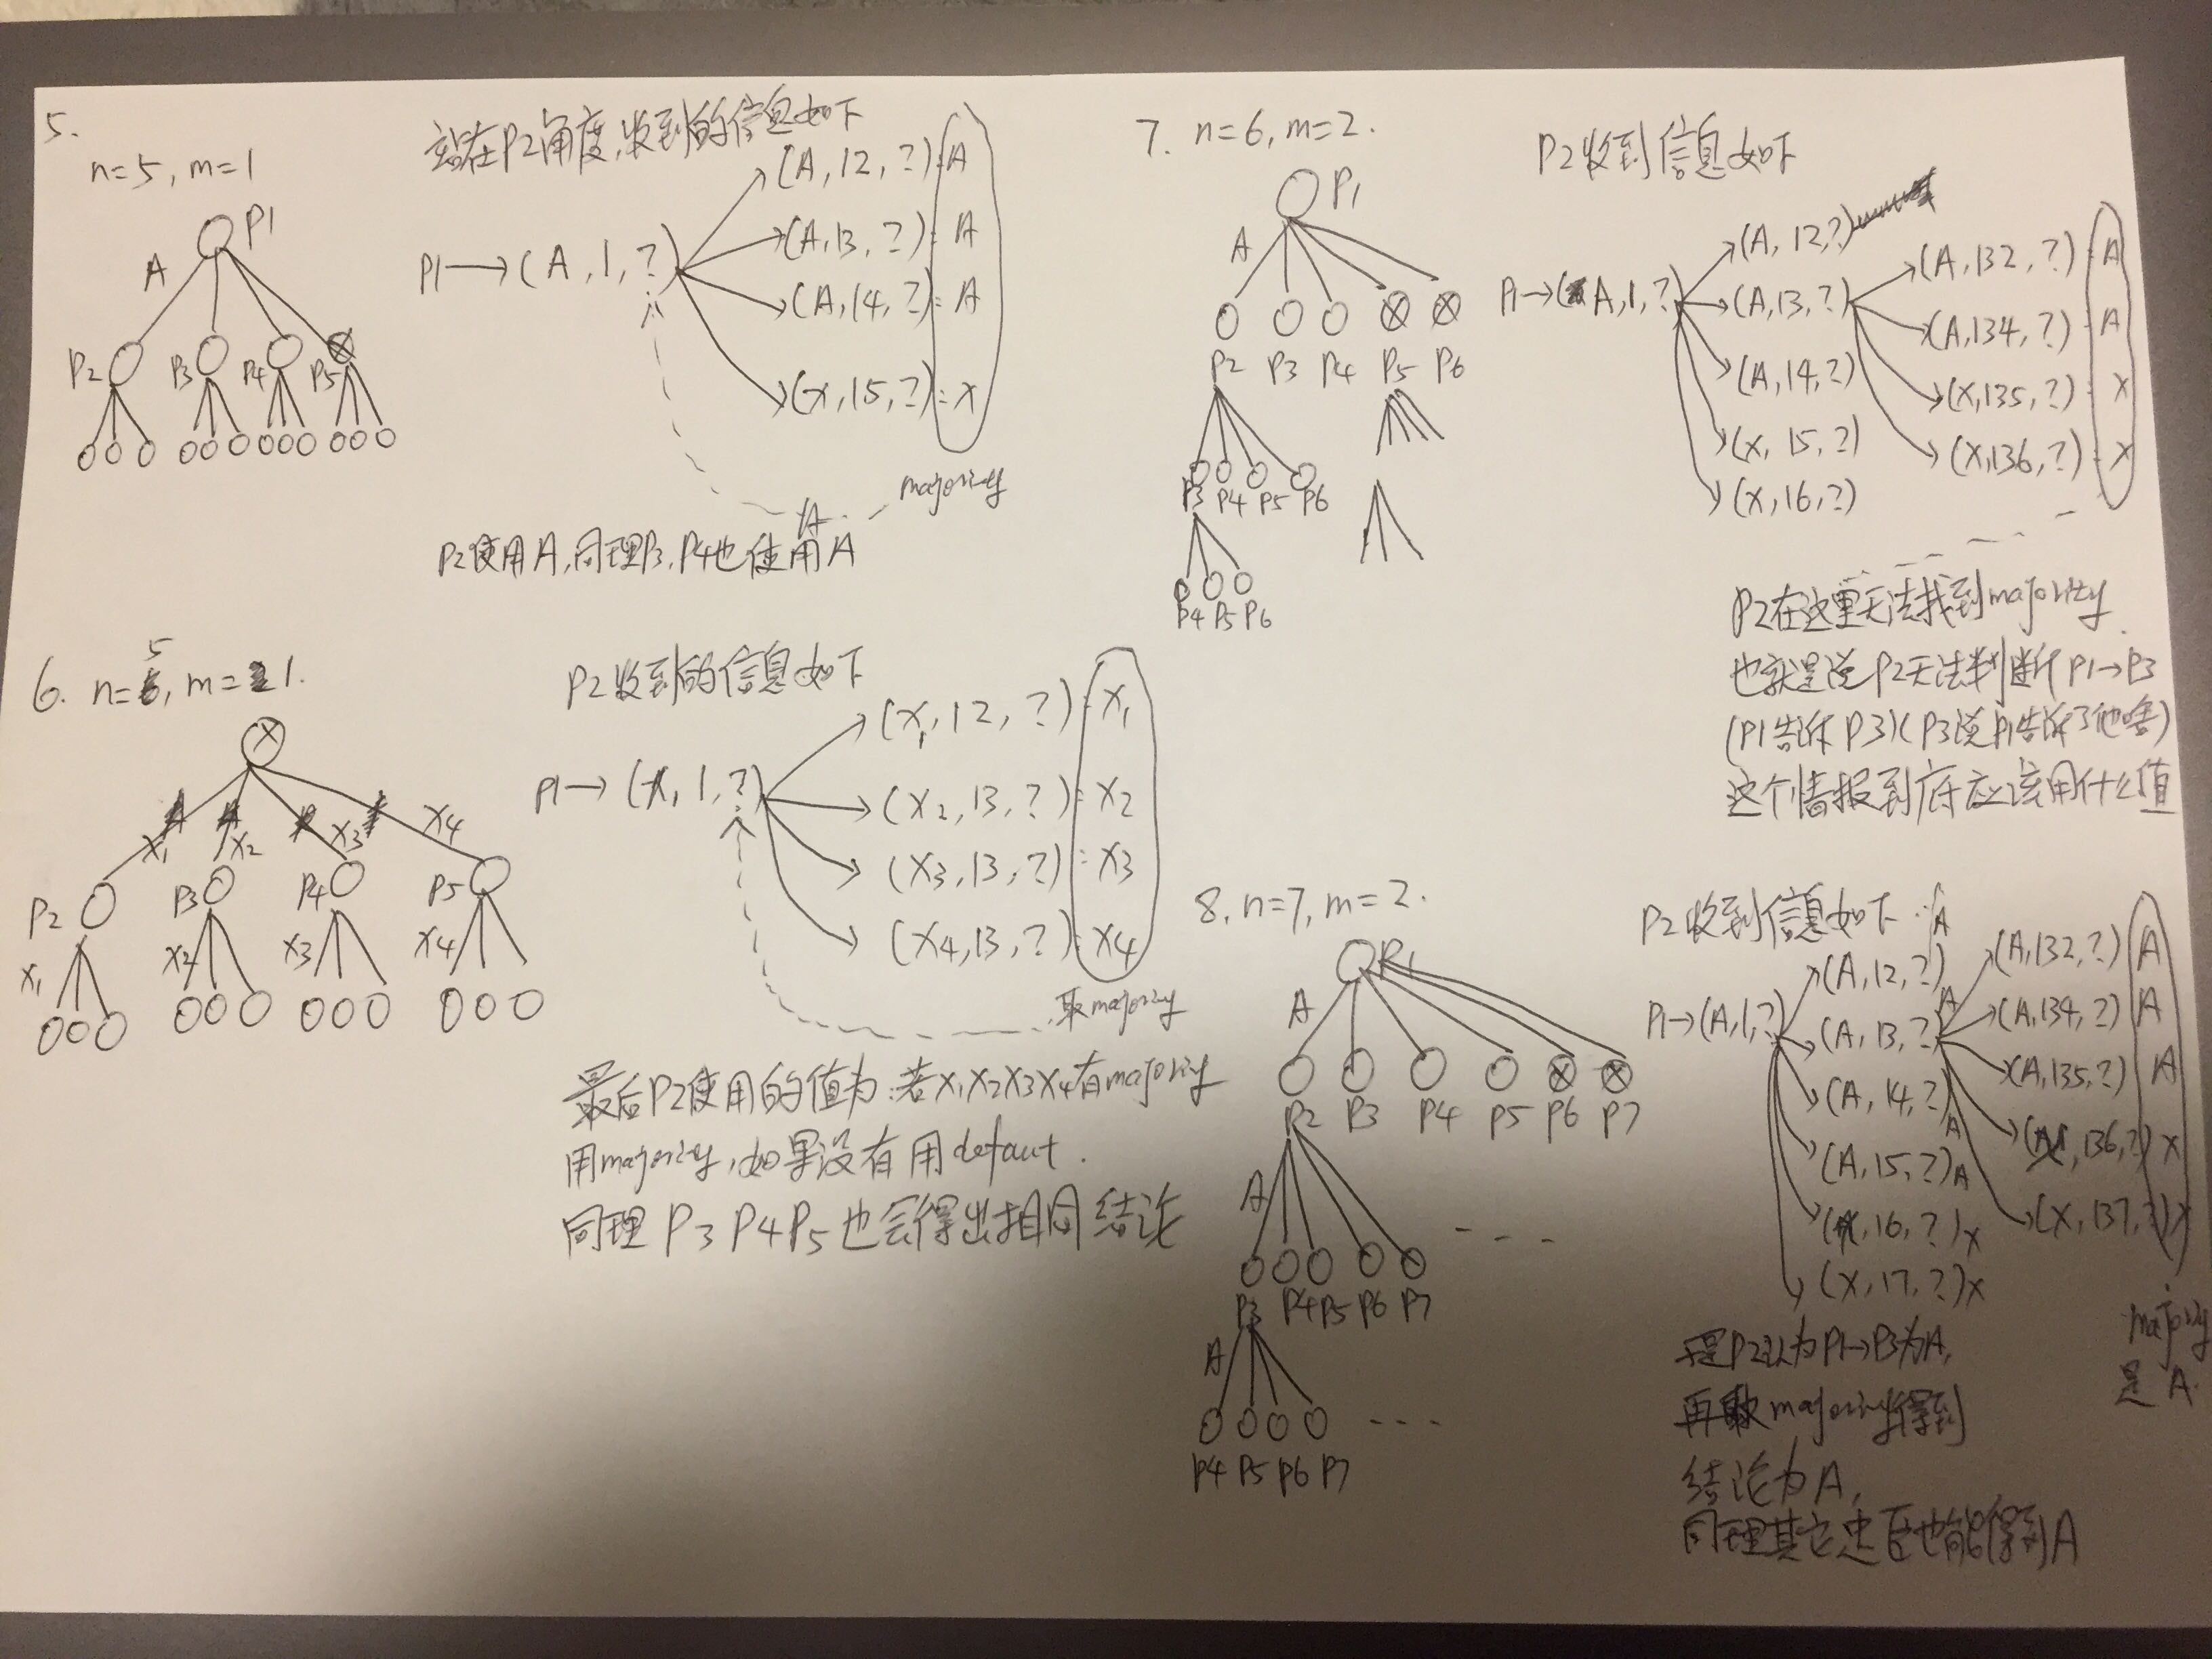 5.
n=5, m=1
P1
A
P2 P3 P4 P5
站在P2角度,收到的信息如下
P1→(A,1,?)
(A,12,?):A
(A,13,?):A
(A,14,?):A
(x,15,?):x
majority
A
P2使用A,同理P3,P4也使用A
6. n=5, m=1.
x1 x2 x3 x4
P2 P3 P4 P5
x1 x2 x3 x4
P2收到的信息如下
P1→(x,1,?)
(x1,12,?):x1
(x2,13,?):x2
(x3,13,?):x3
(x4,13,?):x4
取majority
最后P2使用的值为:若x1x2x3x4有majority
用majority,如果没有用defaut.
同理P3P4P5也会得出相同结论
7. n=6, m=2.
P1
A
P2 P3 P4 P5 P6
P3 P4 P5 P6
P4 P5 P6
P2收到信息如下
P1→(A,1,?)
(A,12,?)
(A,13,?)
(A,14,?)
(x,15,?)
(x,16,?)
(A,132,?):A
(A,134,?):A
(x,135,?):x
(x,136,?):x
P2在这里无法找到majority.
也就是说P2无法判断P1→P3
(P1告诉P3)(P3说P1告诉了他啥)
这个情报到底应该用什么值
8. n=7, m=2.
P1
A
P2 P3 P4 P5 P6 P7
A
P3 P4 P5 P6 P7
A
P4 P5 P6 P7
P2收到信息如下
P1→(A,1,?)
(A,12,?)A
(A,13,?)A
(A,14,?)A
(A,15,?)A
(x,16,?)x
(x,17,?)x
(A,132,?)A
(A,134,?)A
(A,135,?)A
(x,136,?)x
(x,137,?)x
majority
是A.
P2认为P1→P3为A,
再取majority得到
结论为A,
同理其它忠臣也能得到A